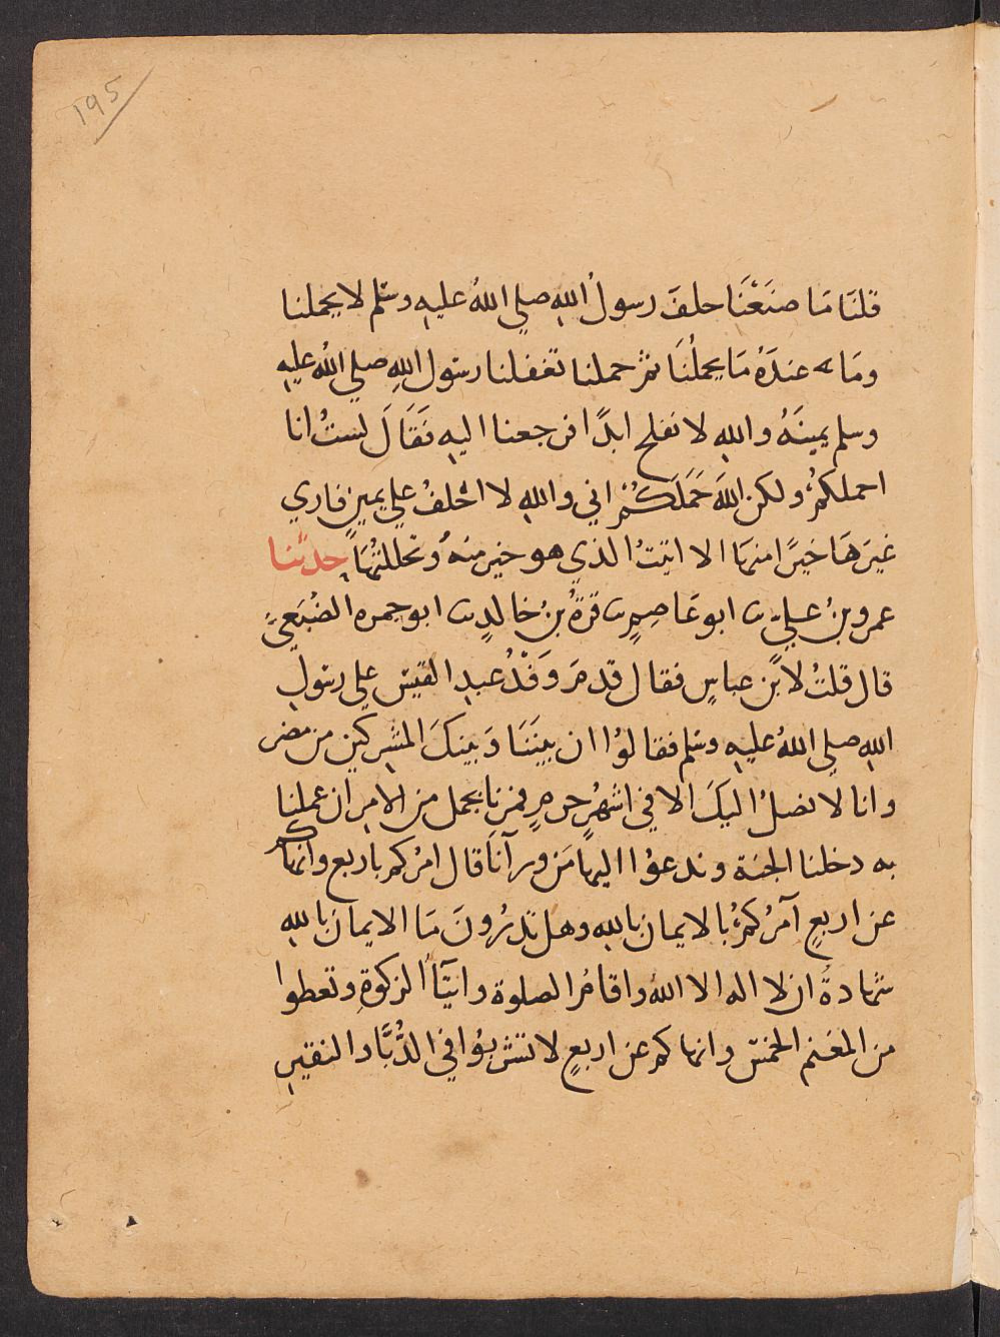 195
قلنَا مَا صنَعْنَا حلفَ رسولُ اللهِ صلي اللهُ عليهِ وسلم لا يحملنا
ومَا عندَهُ مَا يحملُنَا ثمّ حملنا تغفلنا رسول اللهِ صلي الله عليهِ
وسلم يمينَهُ واللهِ لا نفلح ابدًا فرجعنا اليهِ فَقَالَ لستُ انا
احملكمُ ولكن اللهَ حَمَلَكُمْ اني واللهِ لا احْلفُ علي يمينٍ فاري
غيرَهَا خيرًا منهَا الا اتيتُ الذي هو خير منهُ وتحللتُهَا حدثنا
عمرو بنُ عليٍّ ث ابو عَاصِمٍ ث قرةُ بنُ خالدٍ ث ابو جمره الضُبَعيُّ
قال قلتُ لابْنِ عباسٍ فقال قدمَ وَفْدُ عبدِ القيسِ علي رسولِ
اللهِ صلي اللهُ عليهِ وسلم فقالوُا ان بينَنَا وَبينكَ المشركين من مضر
وانا لا نصلُ اليكَ الا في اشهُرٍ حرمٍ فمرنا بجمل من الامرِ ان عملنا
به دخلنا الجنة وندعوُا اليهَا مَن ورآنَا قال امرُكم باربع وانهاكم
عن اربعٍ آمرُكمُ بالايمان باللهِ وهل تدرُونَ مَا الايمان باللهِ
شهادةُ ان لا اله الا اللهُ واقامُ الصلوة وايتآءُ الزكوةِ وتعطوا
من المغنم الخمسَ وانهاكم عن اربعٍ لا تشربوُا في الدُّبَّا والنقيرِ